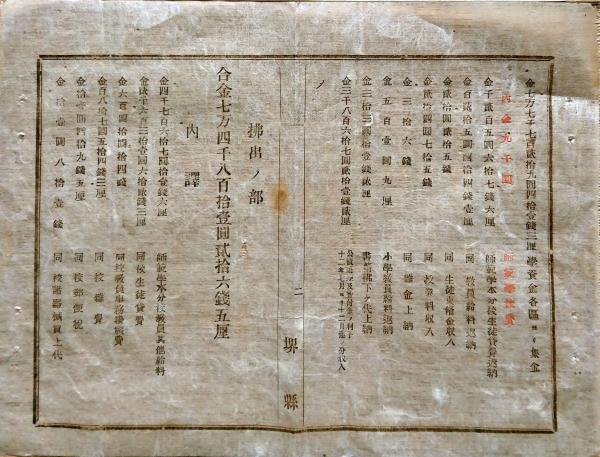 金七万七千七百貳拾九圓四拾壹錢三厘 學資金各區ヨリ集金
内金九千圓 師範學校費
金千貳百五圓六拾七錢六厘 師範學本分校生徒貸費返納
金百貳拾五圓四拾四錢壹厘 同 教員給料返納
金貳拾圓貳拾五錢 同 生徒束脩金収入
金貳拾四圓五拾錢 同 教 資料収入
金三拾六錢 同 雜金上納
金五百壹圓九厘 小學教員給料返納
金三拾三圓三拾壹錢貳厘 書籍拂下ケ代上納
金三千八百六拾七圓貳拾壹錢貳厘 十二年七月ヨリ十二月迄ノ分収入
ノ
二 堺縣
拂出ノ部
合金七万四千八百拾壹圓貳拾六錢五厘
内譯
金四千七百六拾七圓拾壹錢六厘 師範學本分校教員其他給料
金貳千六百三拾壹圓六拾貳錢三厘 同校生徒貸費
金六百四拾圓拾四錢 同校教員事務 費
金百八拾七圓五拾四錢三厘 同校雜費
金拾壹圓四拾九錢五厘 同校郵便税
金拾壹圓八拾壹錢 同校 買上代